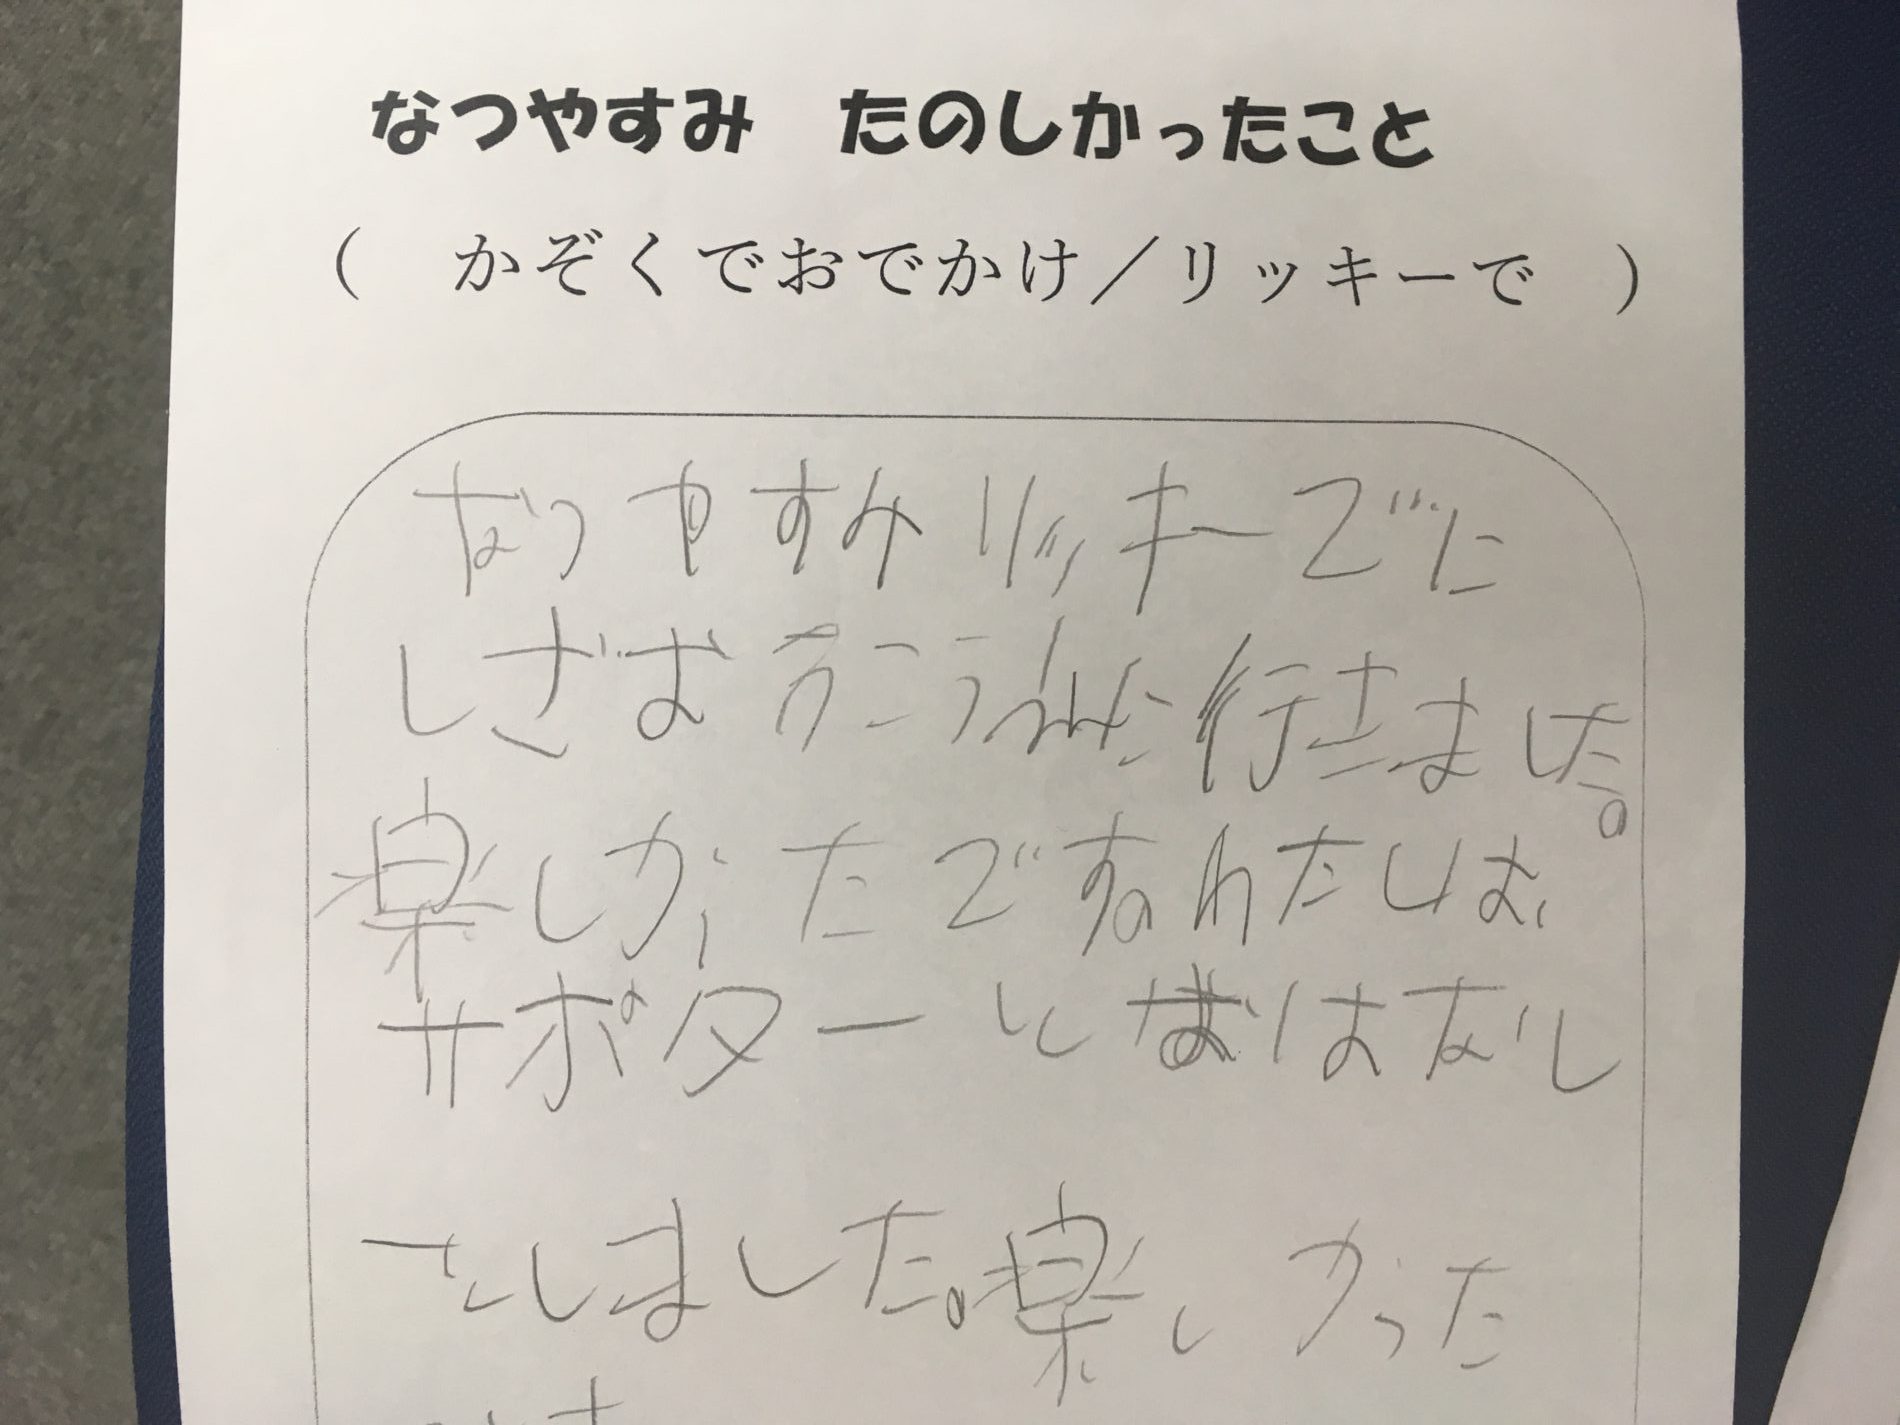 なつやすみ　たのしかったこと
(　かぞくでおでかけ／リッキーで　)
なつやすみリッキーでに
しざおうこうえんに行きました。
楽しかったです。わたしは、
サポターといなりはなし
をしました。楽しかった